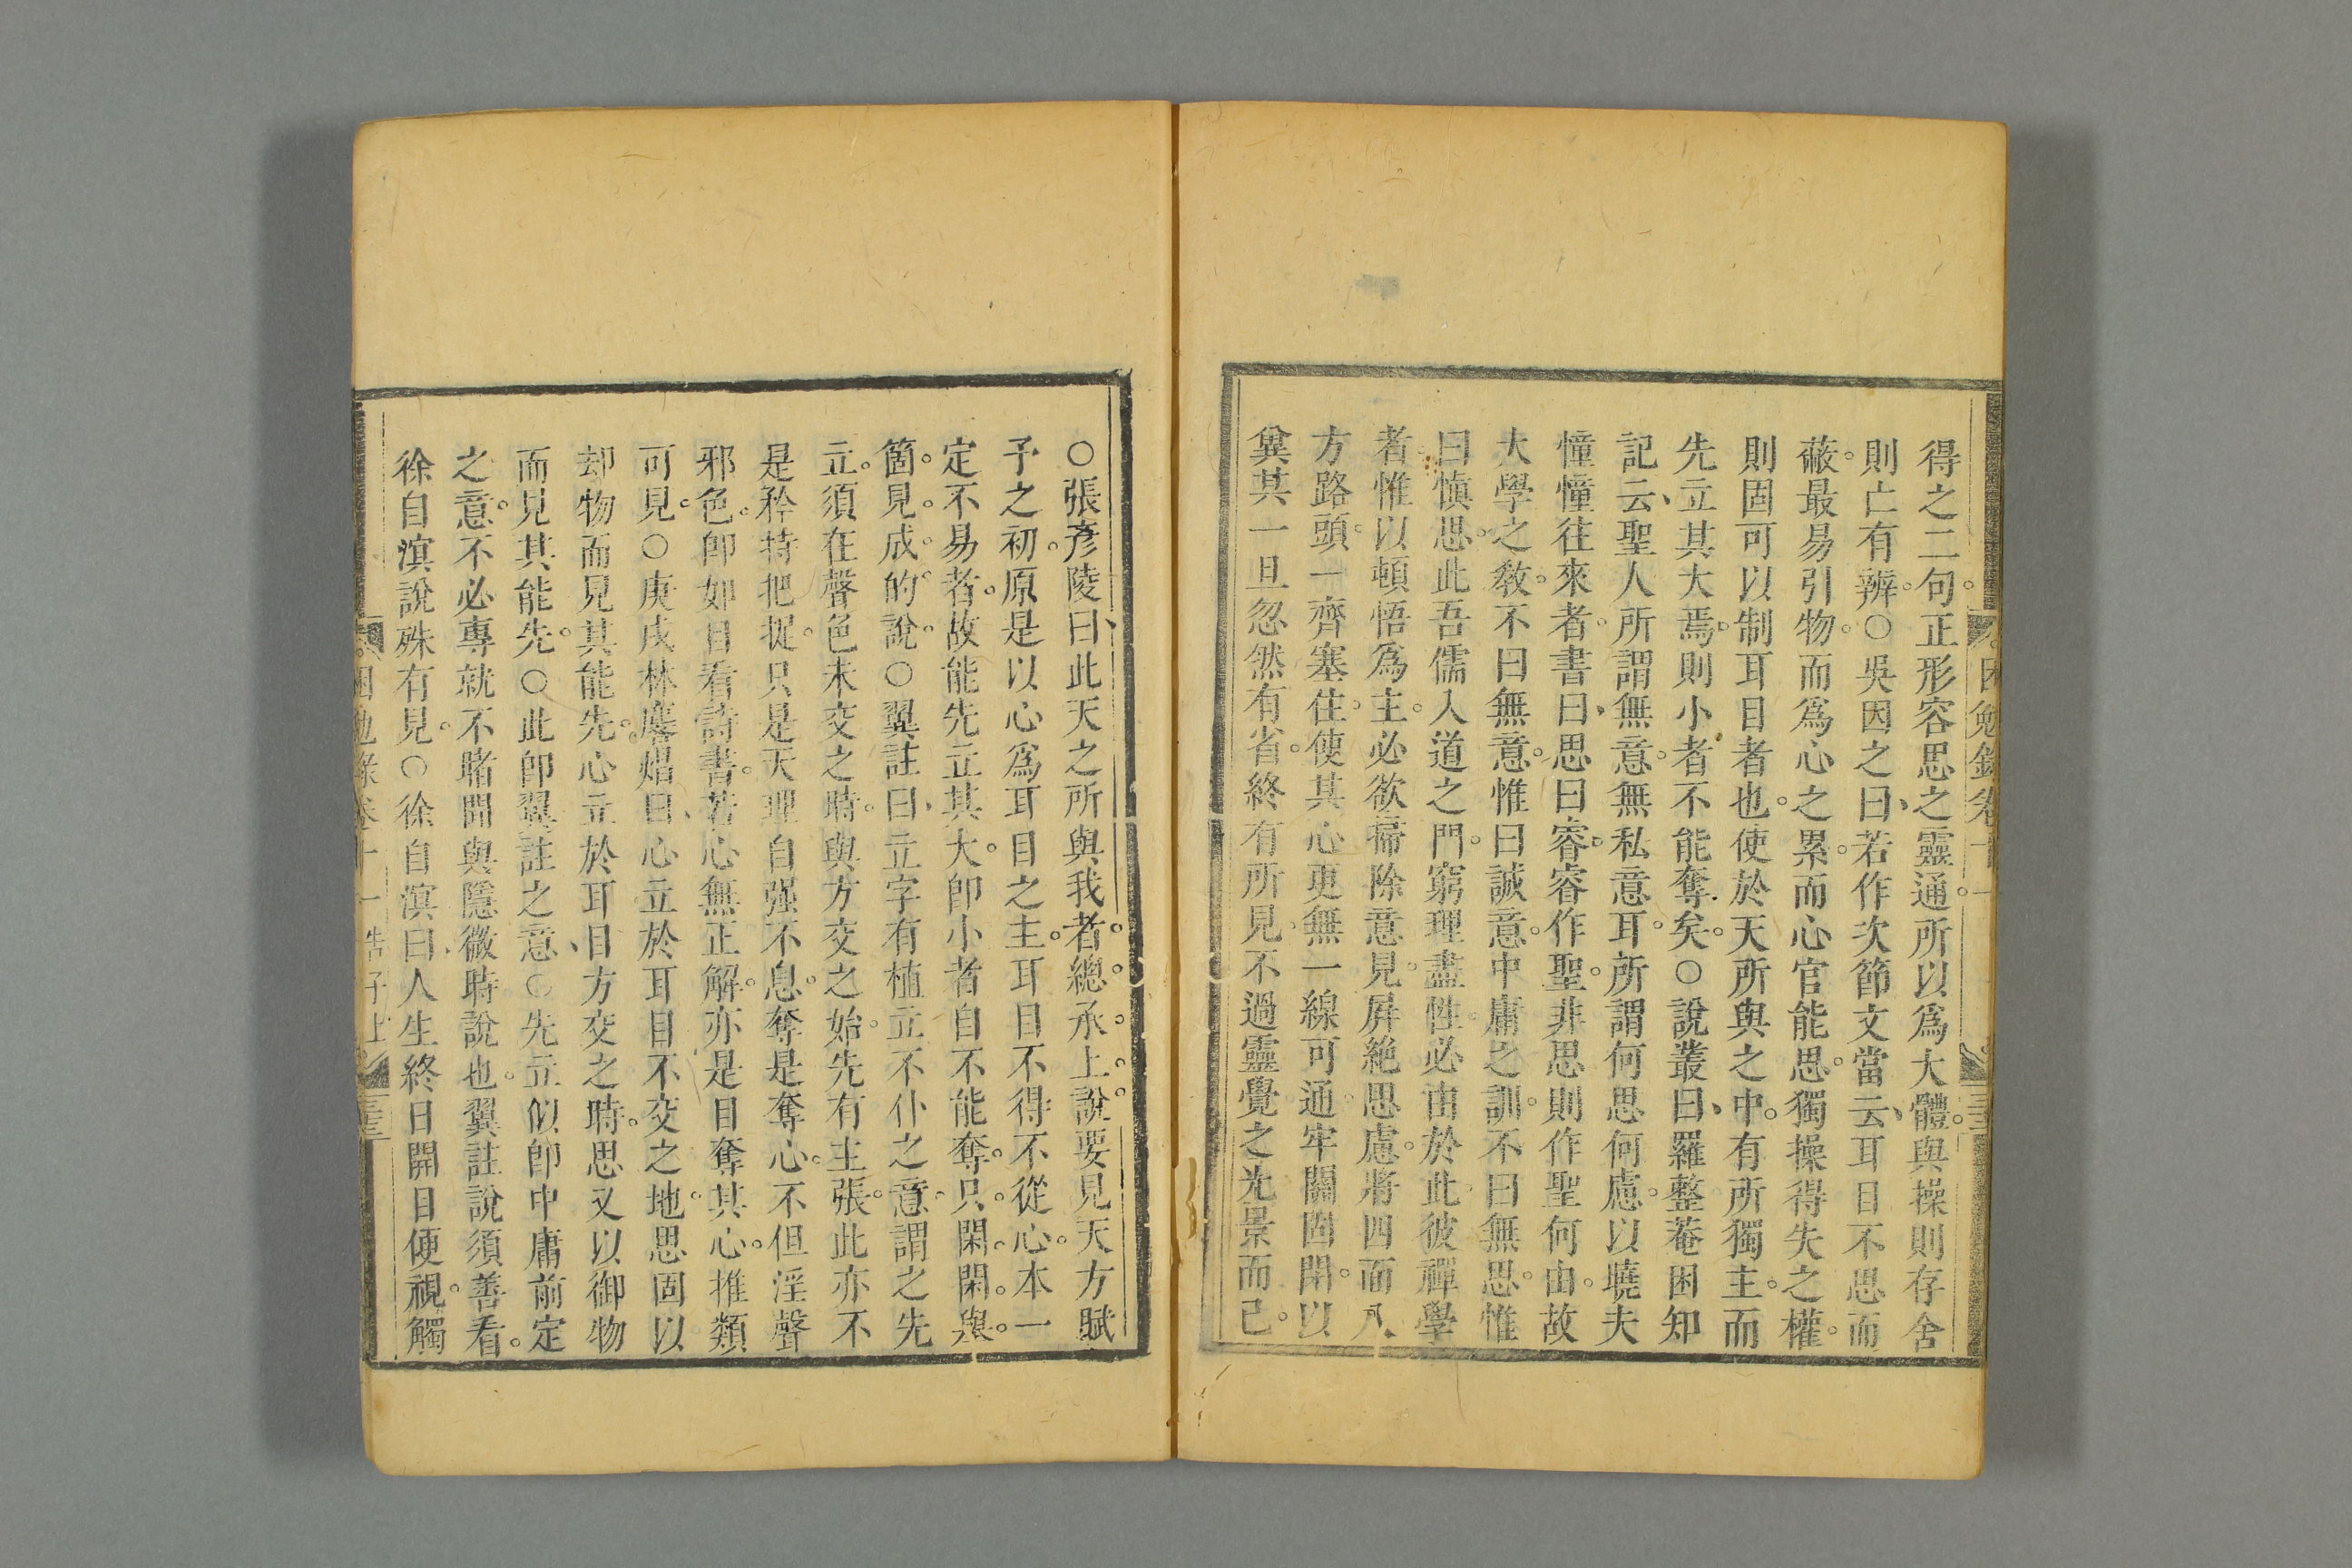 得之二句正形容思之靈通所以為大體與操則存舍
則亡有辨○吳因之曰若作次節文當云耳目不思而
蔽最易引物而為心之累而心官能思獨操得失之權
則固可以制耳目者也使於天所與之中有所獨主而
先立其大焉則小者不能奪矣○說叢曰羅整菴困知
記云聖人所謂無意無私意耳所謂何思何慮以曉夫
憧憧往來者書曰思曰睿睿作聖非思則作聖何由故
大學之教不曰無意惟曰誠意中庸之訓不曰無思惟
曰慎思此吾儒入道之門窮理盡性必由於此彼禪學
者惟以頓悟為主必欲掃除意見屏絕思慮將四面八
方路頭一齊塞住使其心更無一線可通牢關固閉以
冀其一旦忽然有省終有所見不過靈覺之光景而已
○張彥陵曰此天之所與我者總承上說要見天方賦
予之初原是以心為耳目之主耳目不得不從心本一
定不易者故能先立其大卽小者自不能奪只閑閑與
箇見成的說○翼註曰立字有植立不仆之意謂之先
立須在聲色未交之時與方交之始先有主張此亦不
是矜持把捉只是天理自强不息奪是奪心不但淫聲
邪色卽如目看詩書若心無正解亦是目奪其心推類
可見○庚戌林廕熠曰心立於耳目不交之地思固以
却物而見其能先心立於耳目方交之時思又以御物
而見其能先○此卽翼註之意○先立似卽中庸前定
之意不必專就不睹聞與隱微時說也翼註說須善看
徐自溟說殊有見○徐自溟曰人生終日開目便視觸